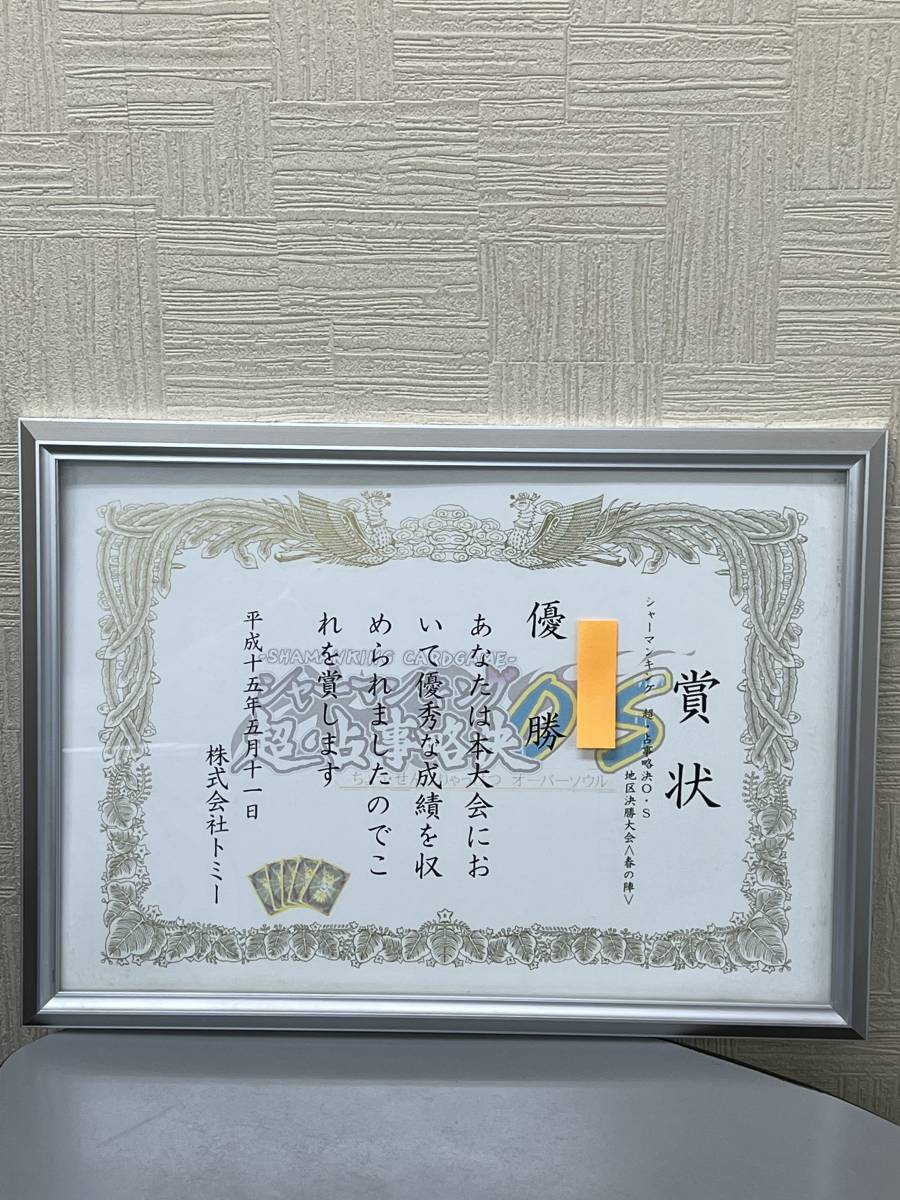 賞状
シャーマンキング 超・占事略決O・S
地区決勝大会<春の陣>
優勝
あなたは本大会にお
いて優秀な成績を収
められましたのでこ
れを賞します
平成十五年五月十一日
株式会社トミー
-SHAMAN KING CARDGAME-
シャーマンキング
超・占事略決 O.S
ちょう せんじりゃっけつ オーバーソウル